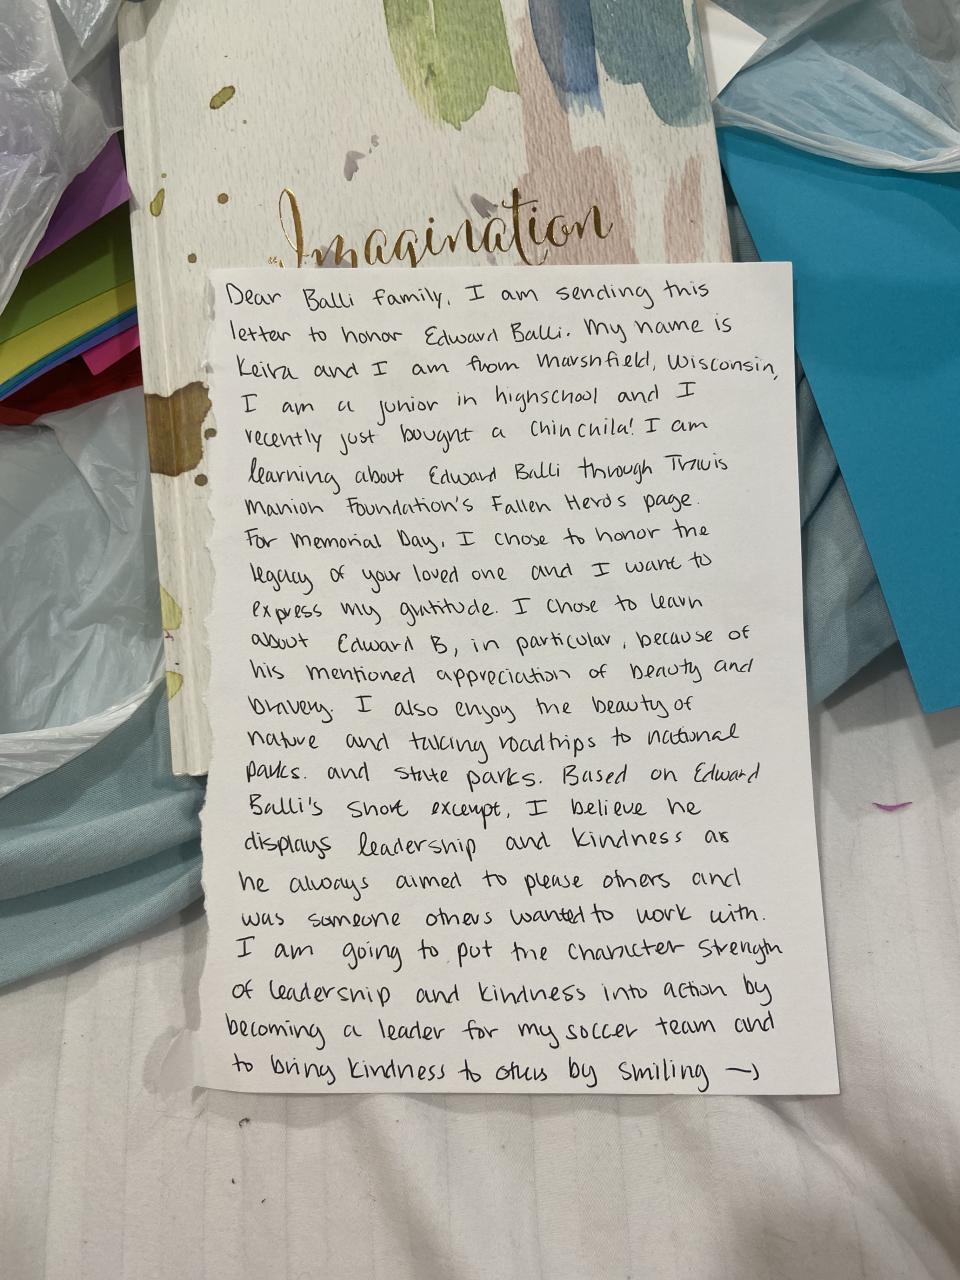 "Imagination
Dear Balli family, I am sending this
letter to honor Edward Balli. My name is
Keira and I am from Marshfield, Wisconsin,
I am a junior in highschool and I
recently just bought a chinchila! I am
learning about Edward Balli through Travis
Manion Foundation's Fallen Hero's page.
For Memorial Day, I chose to honor the
legacy of your loved one and I want to
express my gratitude. I chose to learn
about Edward B, in particular, because of
his mentioned appreciation of beauty and
bravery. I also enjoy the beauty of
nature and taking roadtrips to national
parks. and state parks. Based on Edward
Balli's short excerpt, I believe he
displays leadership and kindness as
he always aimed to please others and
was someone others wanted to work with.
I am going to put the character strength
of leadership and kindness into action by
becoming a leader for my soccer team and
to bring kindness to others by smiling →